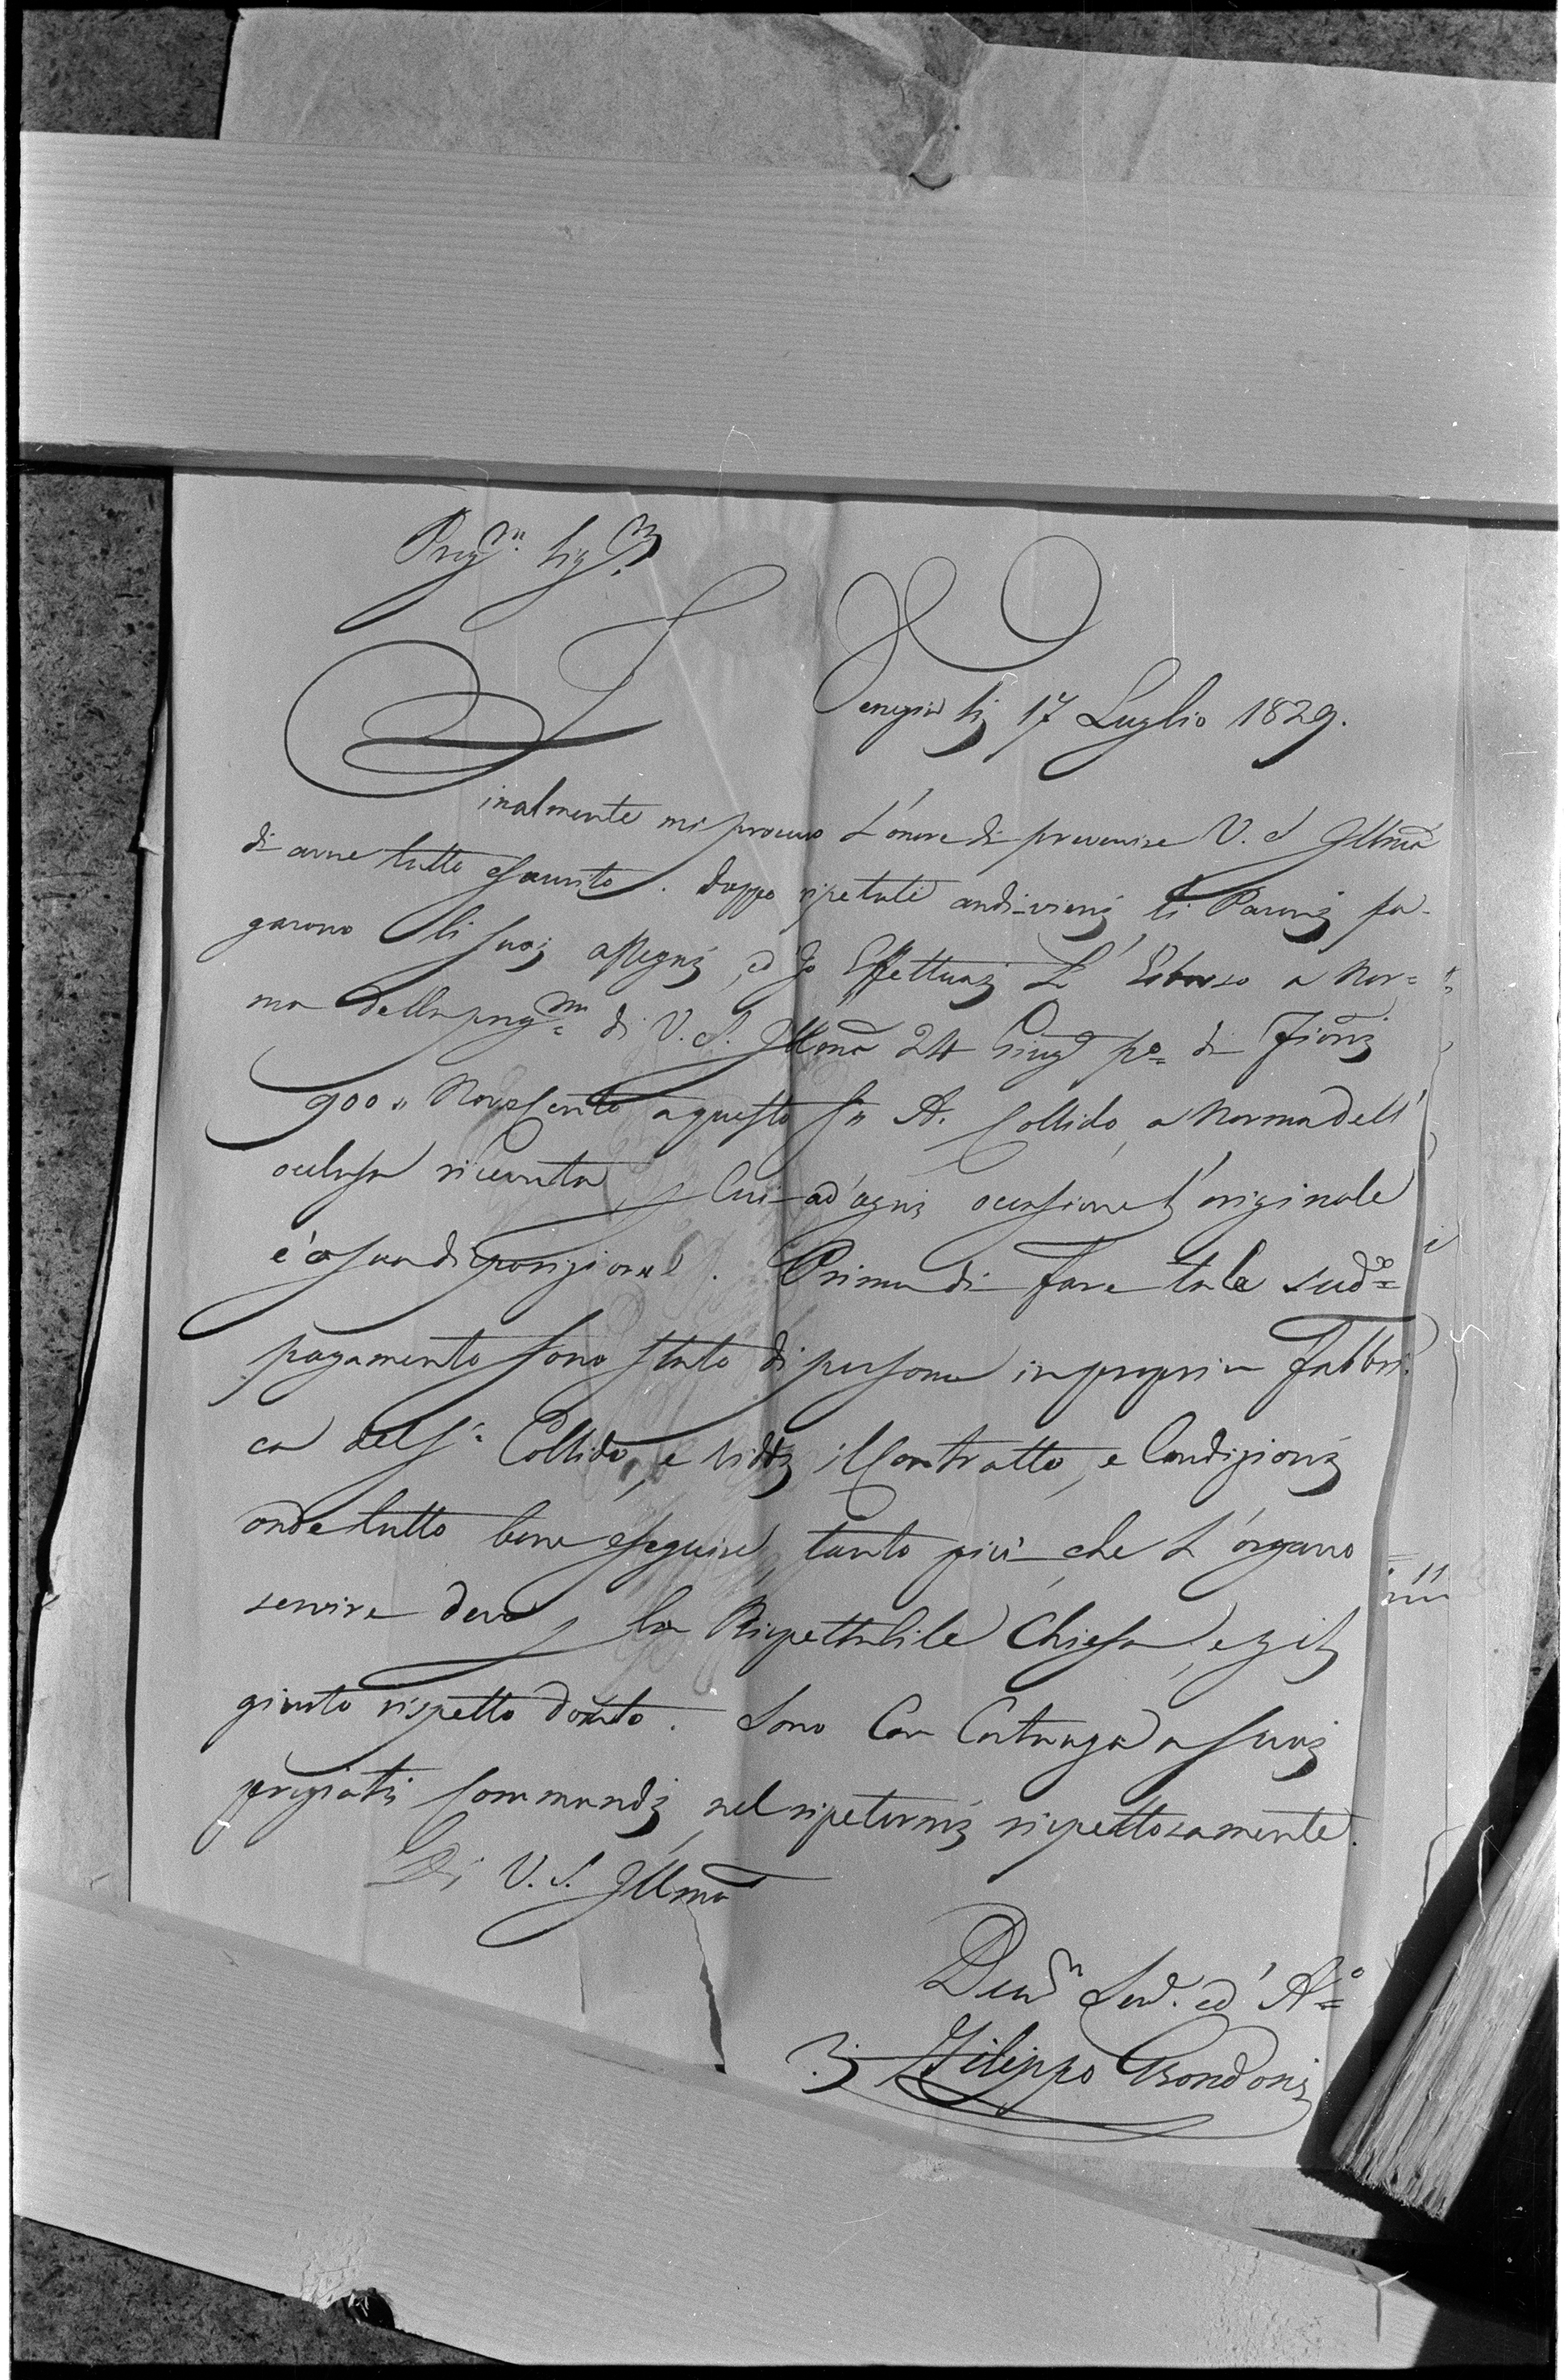 Preg.mo Sig.r
Venezia li 17 Luglio 1829.
Finalmente mi procuro L'onore di prevenire V. S. Illma
di avere tutto esaurito. Doppo ripetuti andivieni li Paroni pa-
garono li suoi assegni, ed Io Effettuai L'Esborso a Nor=
ma della preg.ma di V. S. Illma 24 Giug.o p.o di Fiorini
900,, Novecento a questo S.r A. Callido, a Norma dell'
oclusa ricevuta, Cui ad'ogni ocasione l'originale
è a sua disposizione. Prima di fare tale sud.o
pagamento sono stato di persona in propria Fabbri.
ca del S.r Callido, e viddi il Contratto, e Condizioni
onde tutto bene eseguire, tanto più che L'organo
servire deve la Rispettabile Chiesa, e
giusto rispetto dovuto. Sono Con a suoi
pregiati Commandi nel ripetermi rispettosamente.
Di V. S. Illma
Dev.mo Serv. ed A.o
Filippo Grondoni